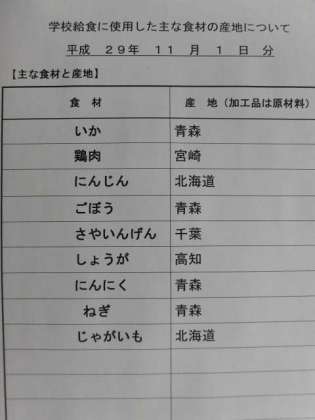 学校給食に使用した主な食材の産地について
平成 29年 11 月 1 日 分
【主な食材と産地】
食 材 産 地（加工品は原材料）
いか 青森
鶏肉 宮崎
にんじん 北海道
ごぼう 青森
さやいんげん 千葉
しょうが 高知
にんにく 青森
ねぎ 青森
じゃがいも 北海道